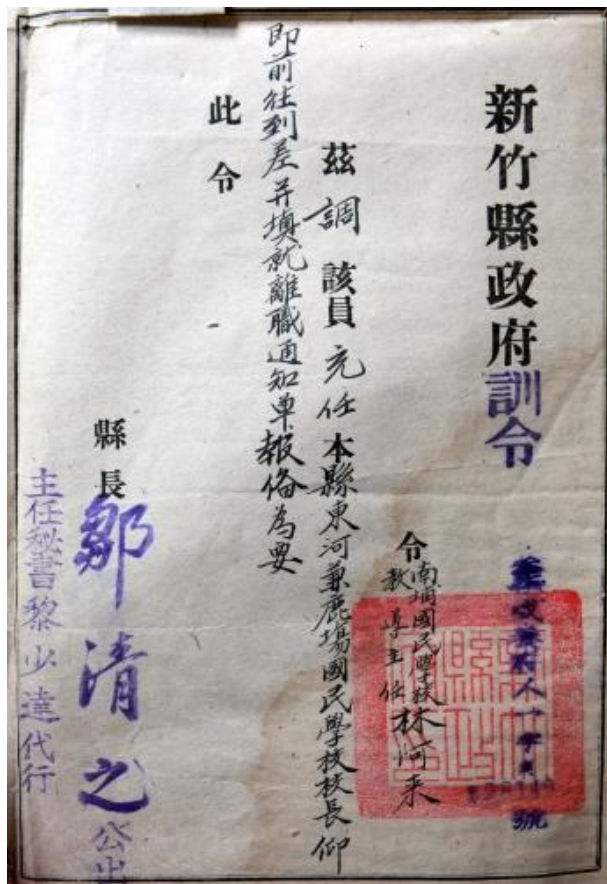 新竹縣政府訓令
號
令南埔國民學校教導主任林阿来
茲調該員充任本縣東河兼鹿場國民學校校長仰
即前往到差并填就離職通知单報俻為要
此令
縣長鄒清之公出
主任秘書黎少達代行